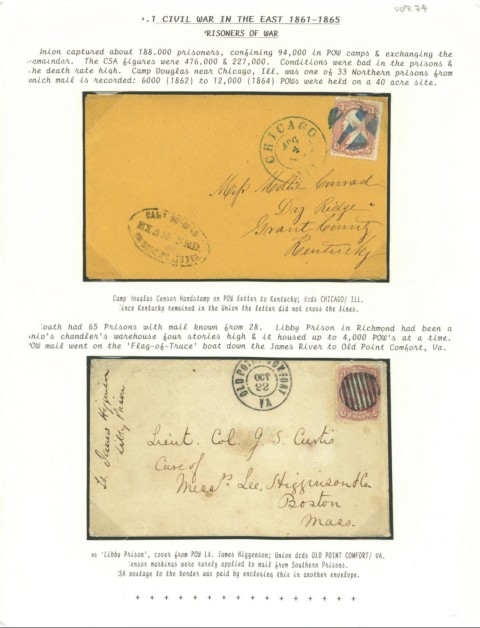 UPE 74
.1 CIVIL WAR IN THE EAST 1861-1865
PRISONERS OF WAR
Union captured about 188.000 prisoners, confining 94,000 in POW camps & exchanging the
remainder. The CSA figures were 476.000 & 227,000. Conditions were bad in the prisons &
the death rate high. Camp Douglas near Chicago, Ill. was one of 33 Northern prisons from
which mail is recorded: 6000 (1862) to 12,000 (1864) POWs were held on a 40 acre site.
CHICAGO
AUG
4
Miss Mollie Conrad
Dry Ridge
Grant County
Kentucky
CAMP
EXAMINED.
Camp Douglas Censor Handstamp on POW letter to Kentucky; dcds CHICAGO/ ILL.
Since Kentucky remained in the Union the letter did not cross the lines.
South had 65 Prisons with mail known from 28. Libby Prison in Richmond had been a
ship's chandler's warehouse four stories high & it housed up to 4,000 POW's at a time.
POW mail went on the 'Flag-of-Truce' boat down the James River to Old Point Comfort, Va.
OLD POINT COMFORT
OCT
22
VA
Lt. James Higginson
Libby Prison
Lieut. Col. G. S. Curtis
Care of
Messrs Lee, Higginson & Co.
Boston
Mass.
'Libby Prison', cover from POW Lt. James Higgenson; Union dcds OLD POINT COMFORT/ VA.
Censor markings were rarely applied to mail from Southern Prisons.
CSA postage to the border was paid by enclosing this in another envelope.
+ + + + + + + + + + + + + + +